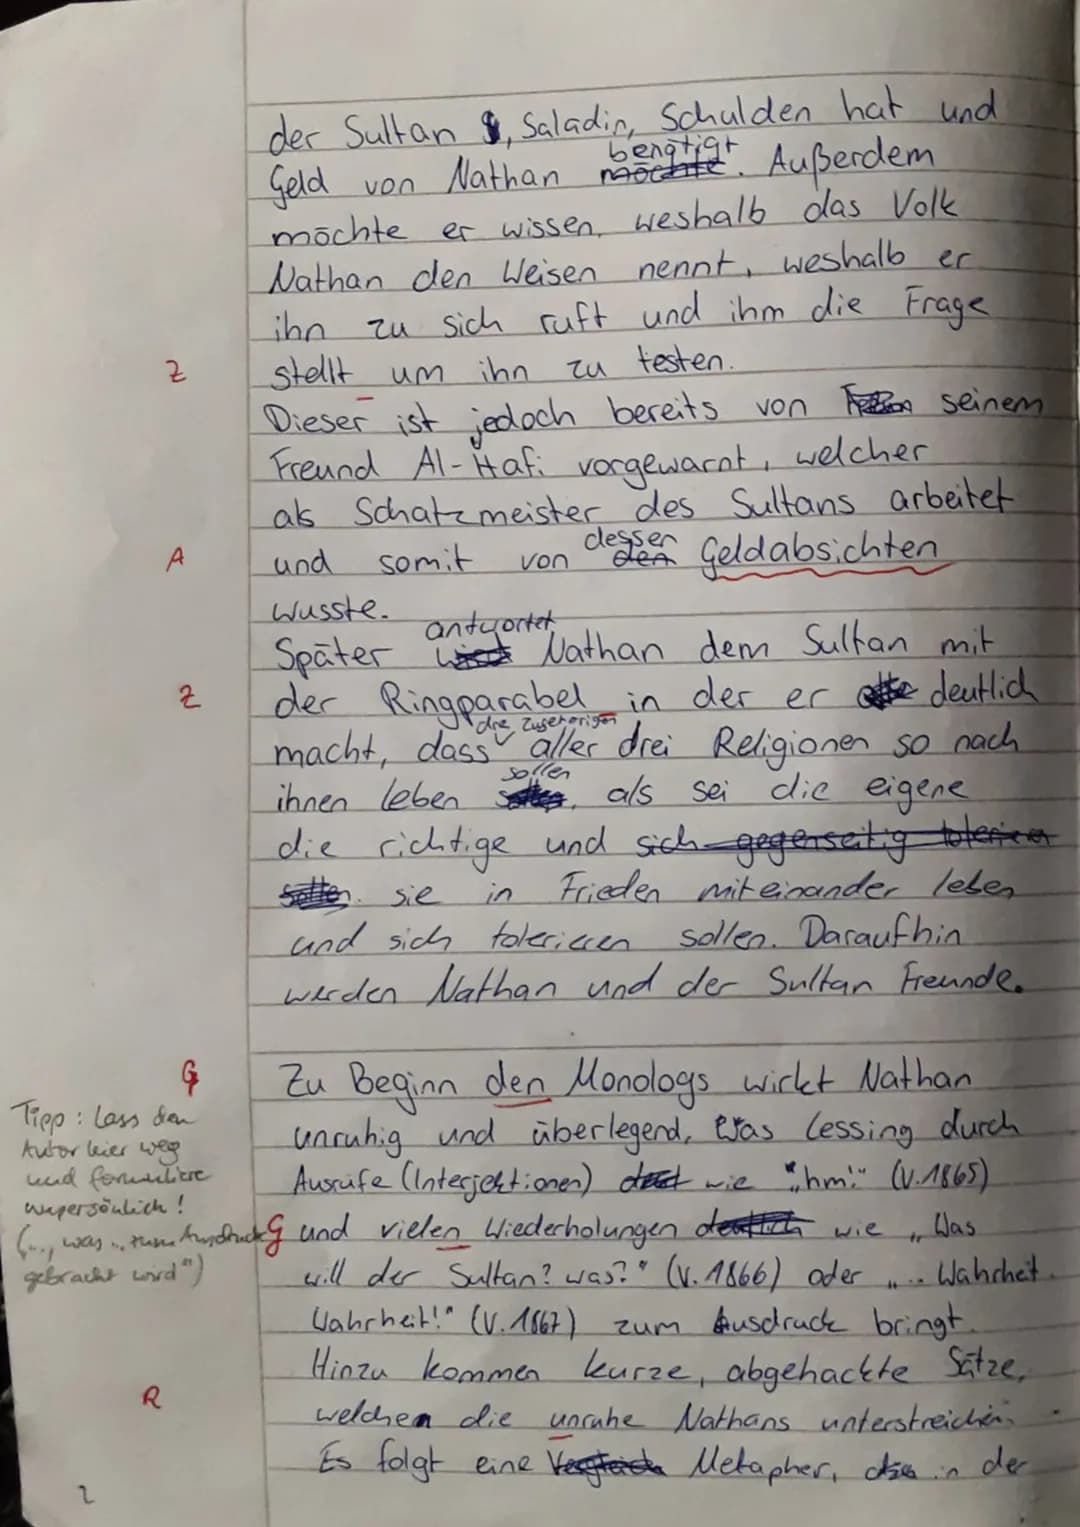 der Sultan, Saladin, Schulden hat und
Geld von Nathan benötigt. Außerdem
möchte er wissen, weshalb das Volk
Nathan den Weisen nennt, weshalb er
ihn zu sich ruft und ihm die Frage
Z stellt um ihn zu testen.
Dieser ist jedoch bereits von seinem
Freund Al-Hafi vorgewarnt, welcher
als Schatzmeister des Sultans arbeitet
A und somit von dessen Geldabsichten
wusste.
Später antwortet Nathan dem Sultan mit
Z der Ringparabel in der er deutlich
macht, dass die Zugehörigen aller drei Religionen so nach
ihnen leben sollen, als sei die eigene
die richtige und
sie in Frieden miteinander leben
und sich tolerieren sollen. Daraufhin
werden Nathan und der Sultan Freunde.
G Zu Beginn den Monologs wirkt Nathan
unruhig und überlegend, was Lessing durch
Ausrufe (Interjektionen) wie "hm!" (V.1865)
G und vielen Wiederholungen wie „Was
will der Sultan? was?" (V. 1866) oder „... Wahrheit.
Wahrheit!" (V.1867) zum Ausdruck bringt.
Hinzu kommen kurze, abgehackte Sätze,
R welchen die unruhe Nathans unterstreichen.
Es folgt eine Metapher, in der
Tipp: Lass den
Autor hier weg
und formuliere
unpersönlich!
(..., was ... zum Ausdruck
gebracht wird")
2